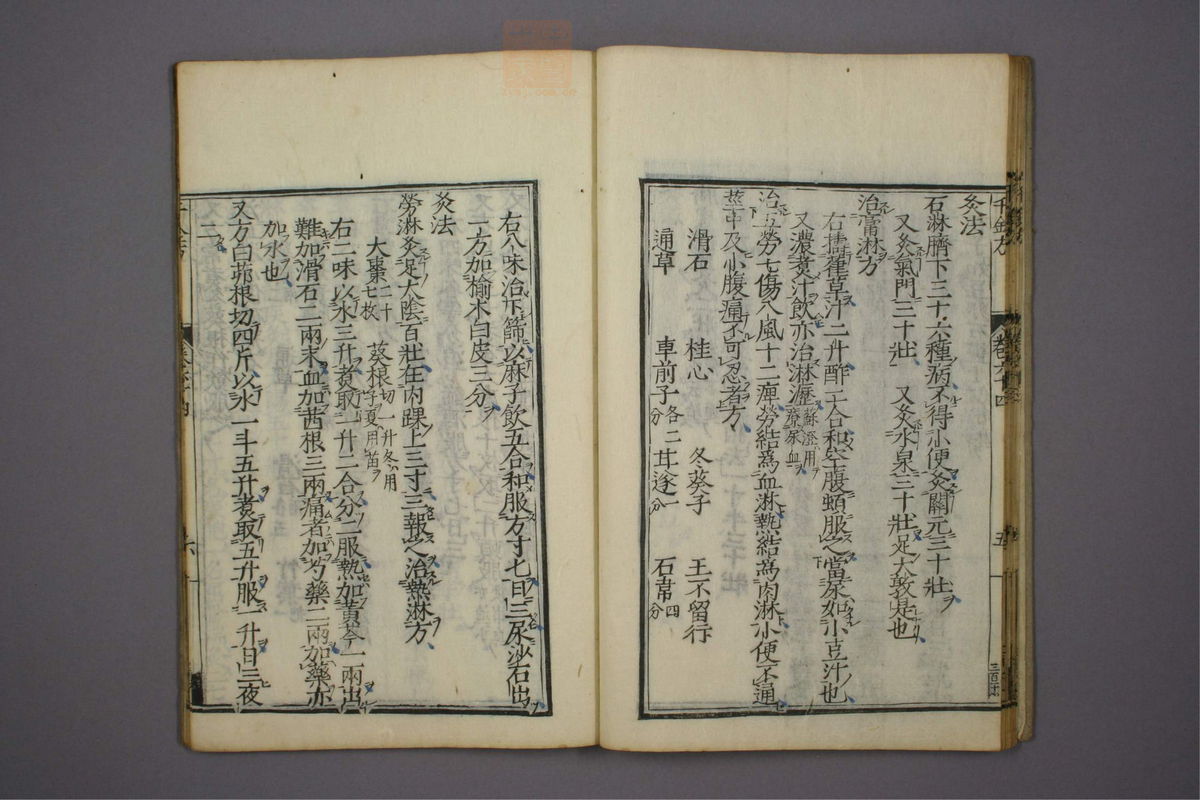 灸法
石淋臍下三十六種病不得小便灸關元三十壯
又灸氣門三十壯 又灸水泉三十壯足大敦是也
治膏淋方
右擣葎草汁二升酢二合和空腹頓服之當尿如小豆汁也
又濃煮汁飲亦治淋瀝蘇澄用療尿血
治五勞七傷八風十二痹勞結爲血淋熱結爲肉淋小便不通
莖中及小腹痛不可忍者方
滑石 桂心 冬葵子 王不留行
通草 車前子各二分 甘遂一分 石韋四分
右八味治下篩以麻子飲五合和服方寸匕日三尿沙石出
一方加榆木白皮三分
灸法
勞淋灸足太陰百壯在内踝上三寸三報之治熱淋方
大棗二十七枚 葵根切一升冬用子夏用苗
右二味以水三升煮取一升二合分二服熱加黃芩一兩出
難加滑石二兩末血加茜根三兩痛者加芍藥二兩加藥亦
加水也
又方白茆根切四斤以水一斗五升煮取五升服一升日三夜
二